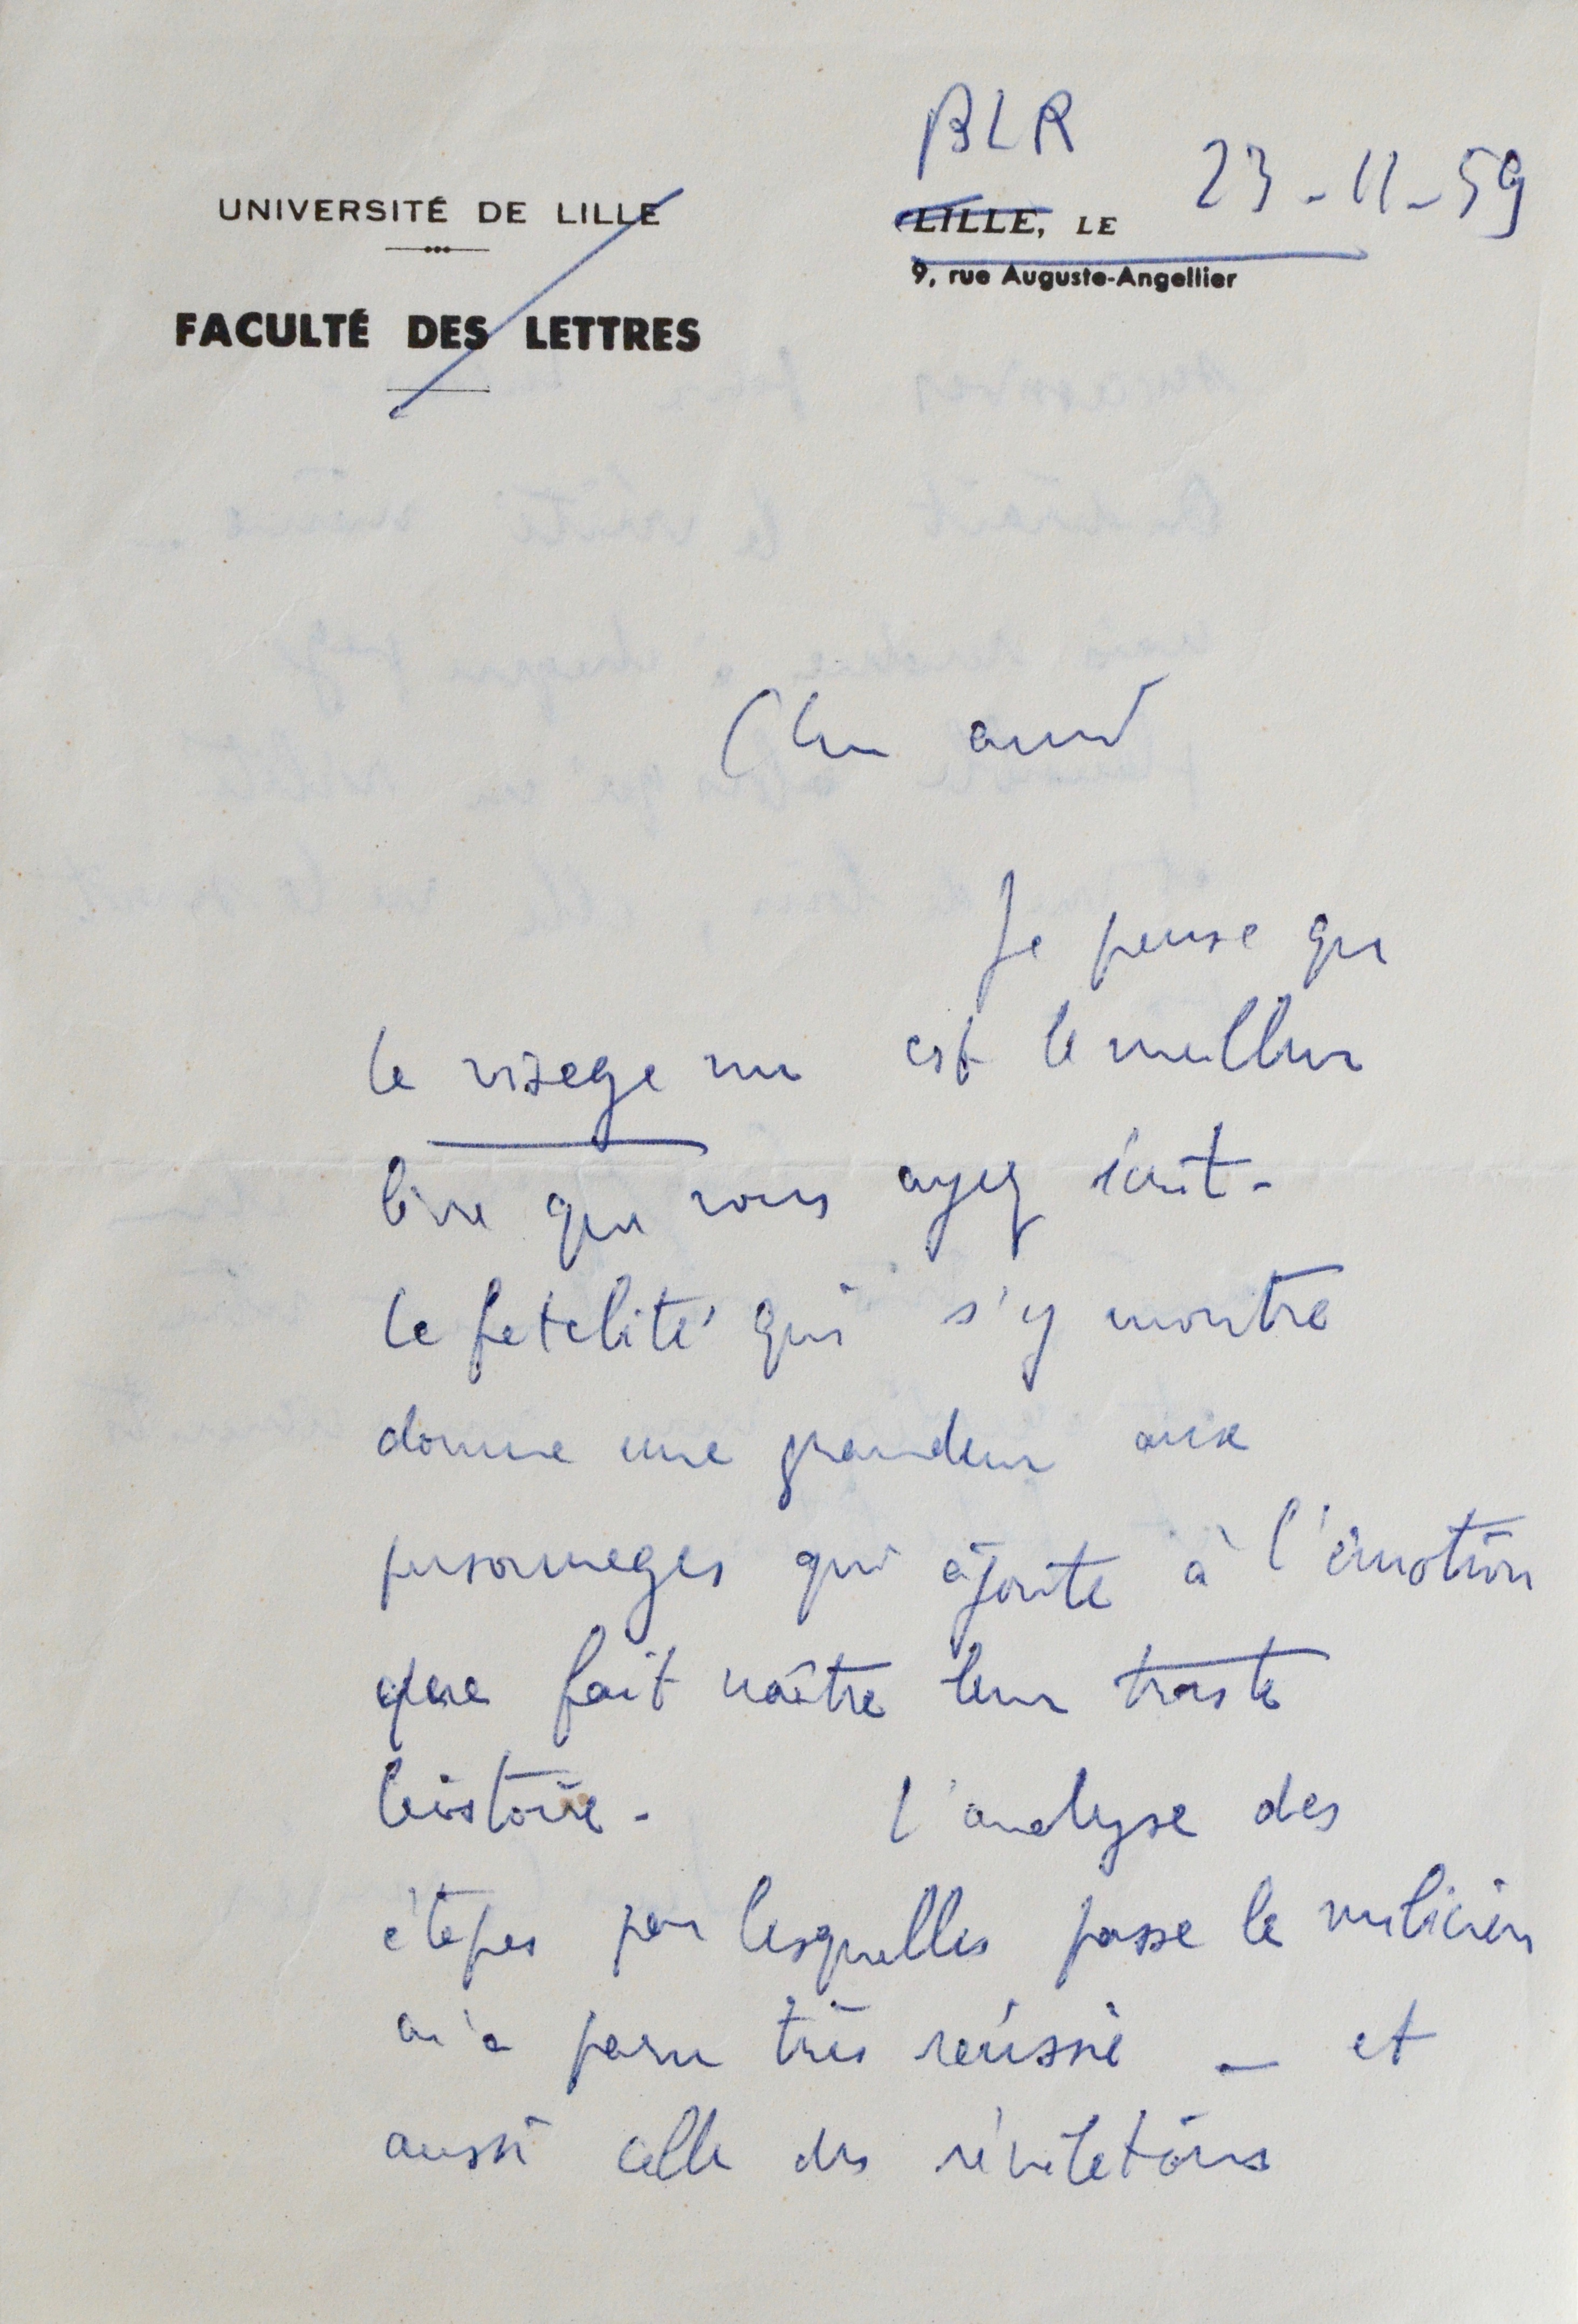 BLR
23-11-59
UNIVERSITÉ DE LILLE
LILLE, LE
9, rue Auguste-Angellier
FACULTÉ DES LETTRES
Cher ami
Je pense que
le visage nu est le meilleur
livre que vous ayez écrit -
la fatalité qui s'y montre
donne une grandeur aux
personnages qui ajoute à l'émotion
que fait naître leur triste
histoire - L'analyse des
étapes par lesquelles passe le milicien
m'a paru très réussie - et
aussi celle des révélations